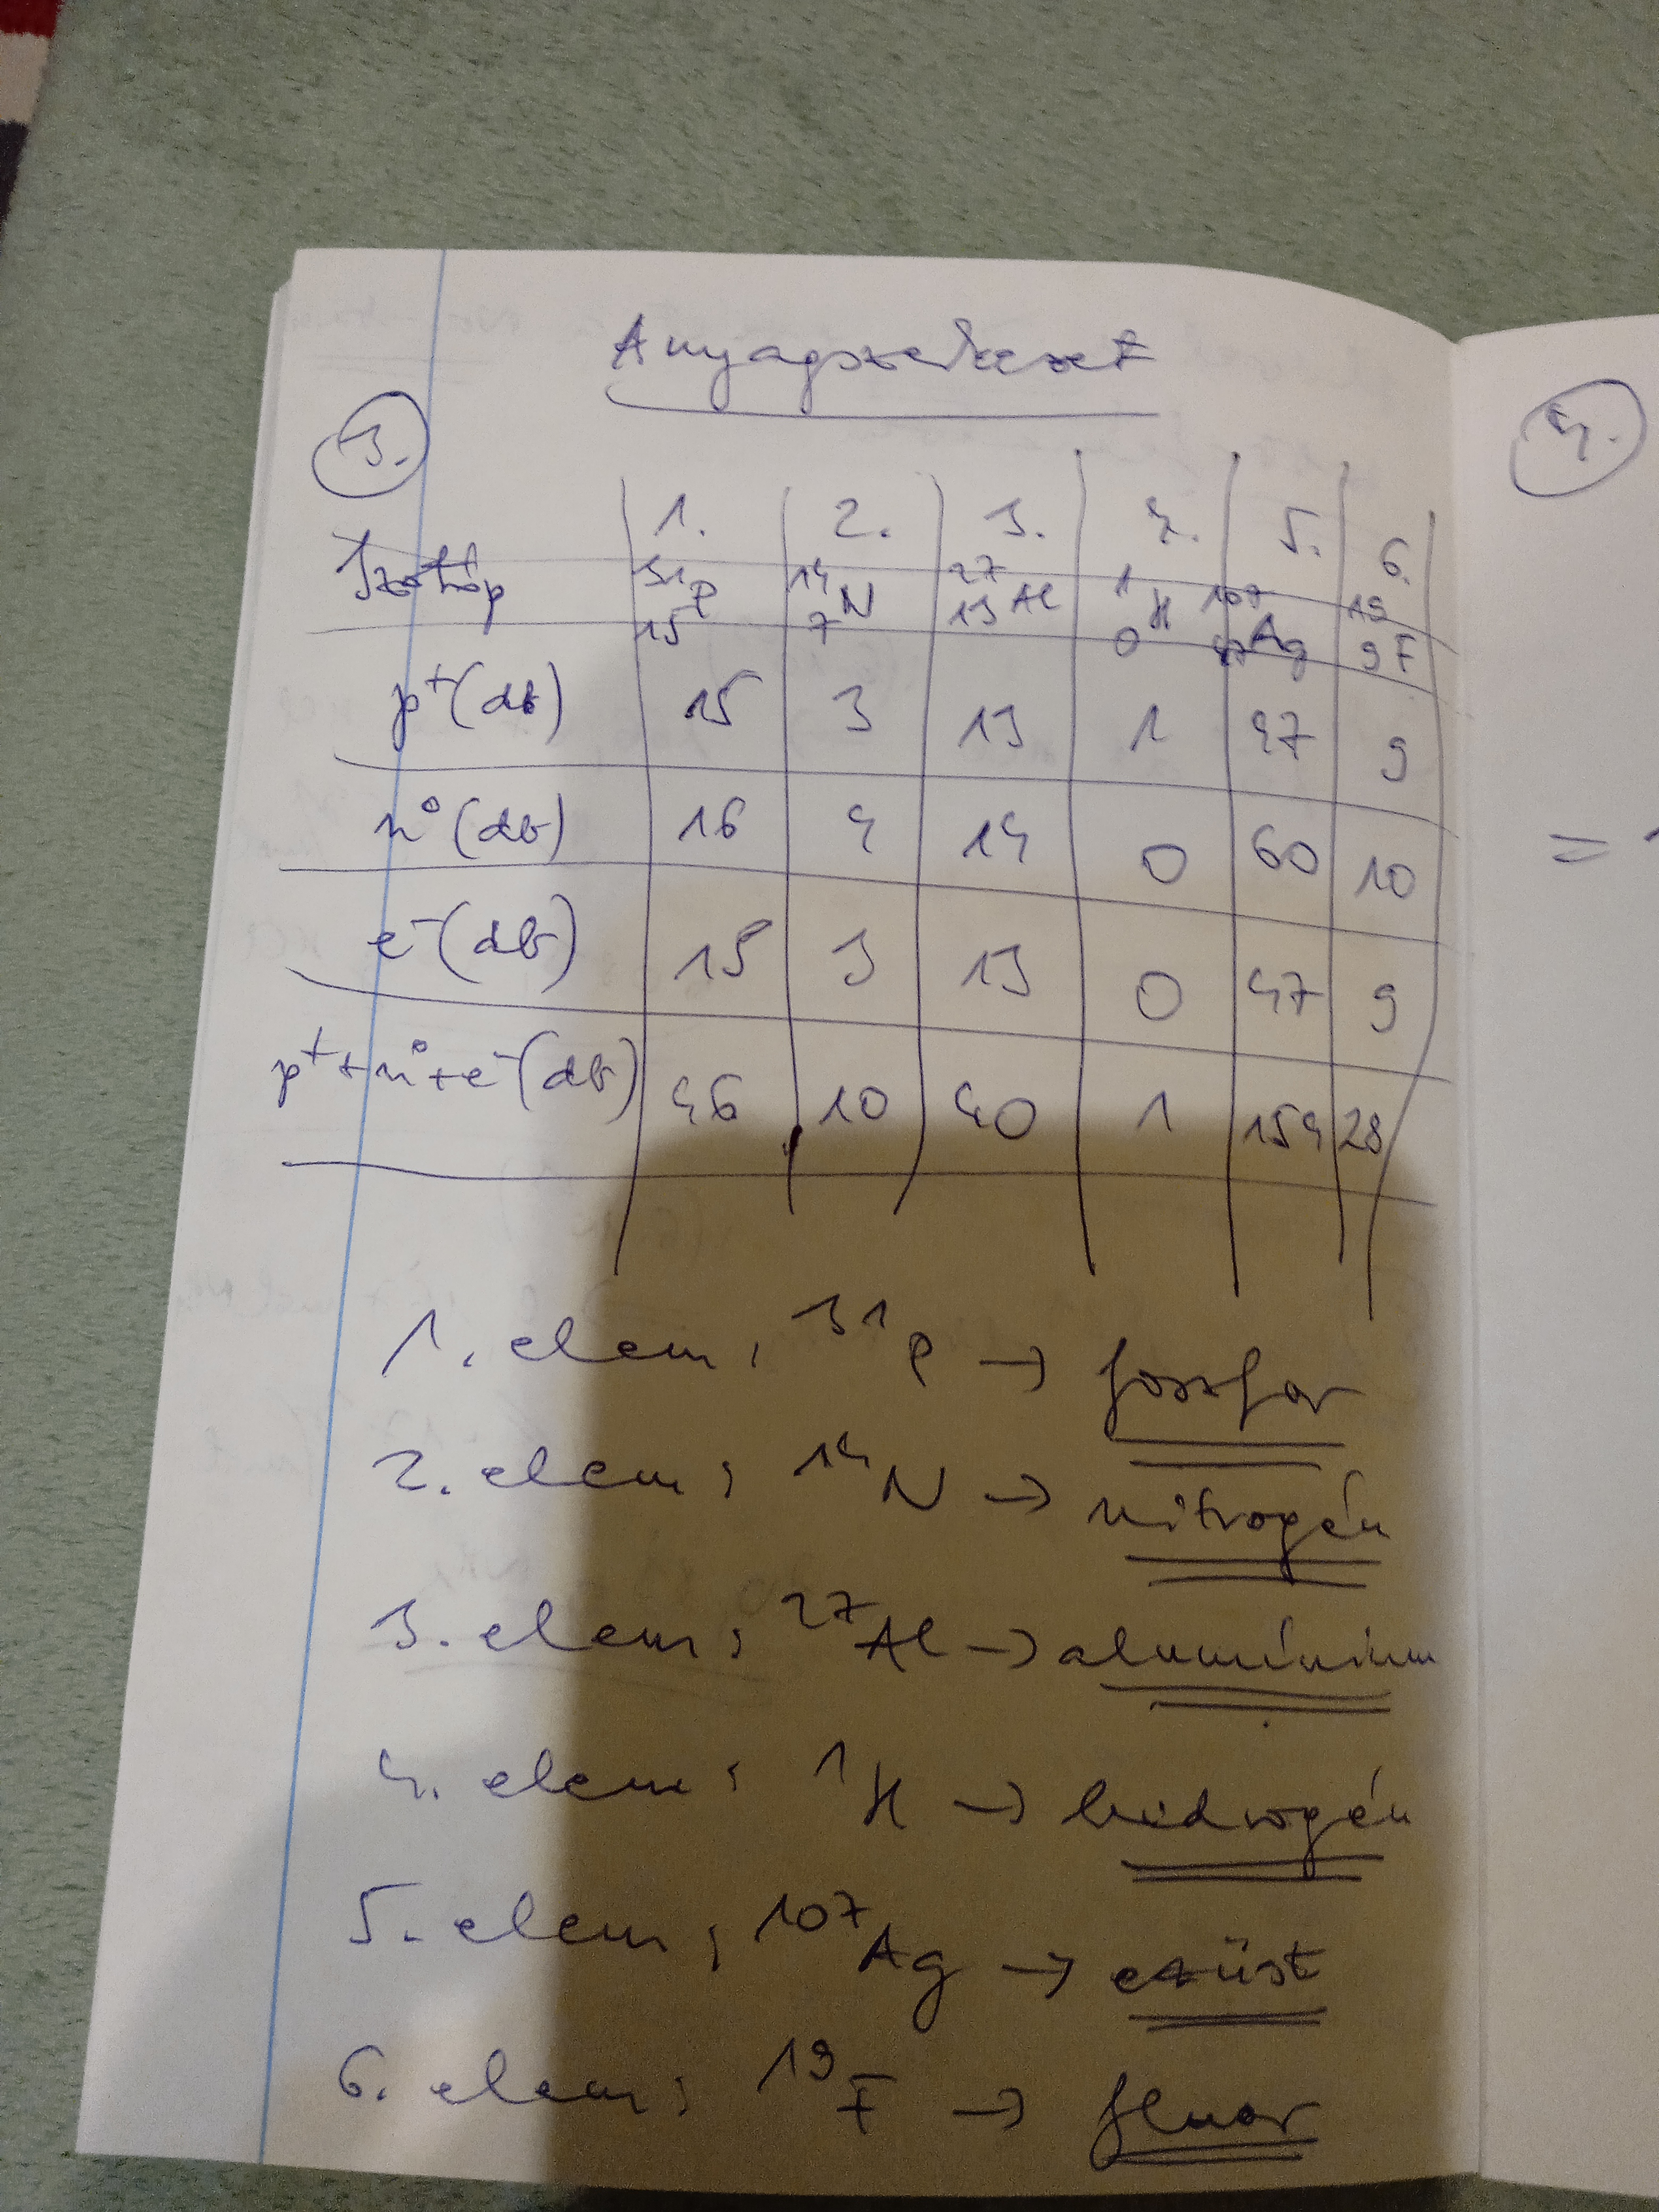 Anyagszerkezet
3.
4.
1. 2. 3. 4. 5. 6.
Izotóp ³¹₁₅P ¹⁴₇N ²⁷₁₃Al ¹₀H ¹⁰⁷₄₇Ag ¹⁹₉F
p⁺(db) 15 3 13 1 47 9
n⁰(db) 16 4 14 0 60 10
e⁻(db) 15 3 13 0 47 9
p⁺+n⁰+e⁻(db) 46 10 40 1 154 28
=
1. elem: ³¹P → foszfor
2. elem: ¹⁴N → nitrogén
3. elem: ²⁷Al → alumínium
4. elem: ¹H → hidrogén
5. elem: ¹⁰⁷Ag → ezüst
6. elem: ¹⁹F → fluor